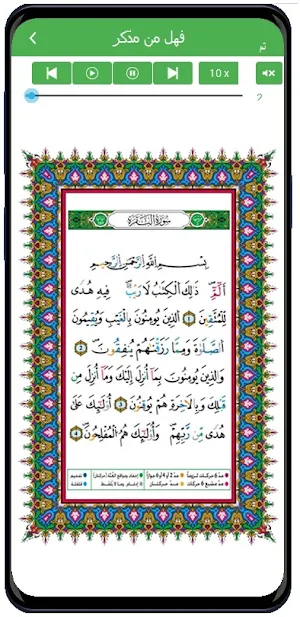 فهل من مدكر
10 x
سُورَةُ البَقَرَة
بِسْمِ اللَّهِ الرَّحْمَٰنِ الرَّحِيمِ
الٓمٓ ۝ ذَٰلِكَ الْكِتَٰبُ لَا رَيْبَ ۛ فِيهِ ۛ هُدًى
لِّلْمُتَّقِينَ ۝ الَّذِينَ يُؤْمِنُونَ بِالْغَيْبِ وَيُقِيمُونَ
الصَّلَوٰةَ وَمِمَّا رَزَقْنَٰهُمْ يُنفِقُونَ ۝
وَالَّذِينَ يُؤْمِنُونَ بِمَآ أُنزِلَ إِلَيْكَ وَمَآ أُنزِلَ مِن
قَبْلِكَ وَبِالْآخِرَةِ هُمْ يُوقِنُونَ ۝ أُولَٰٓئِكَ عَلَىٰ
هُدًى مِّن رَّبِّهِمْ ۖ وَأُولَٰٓئِكَ هُمُ الْمُفْلِحُونَ ۝